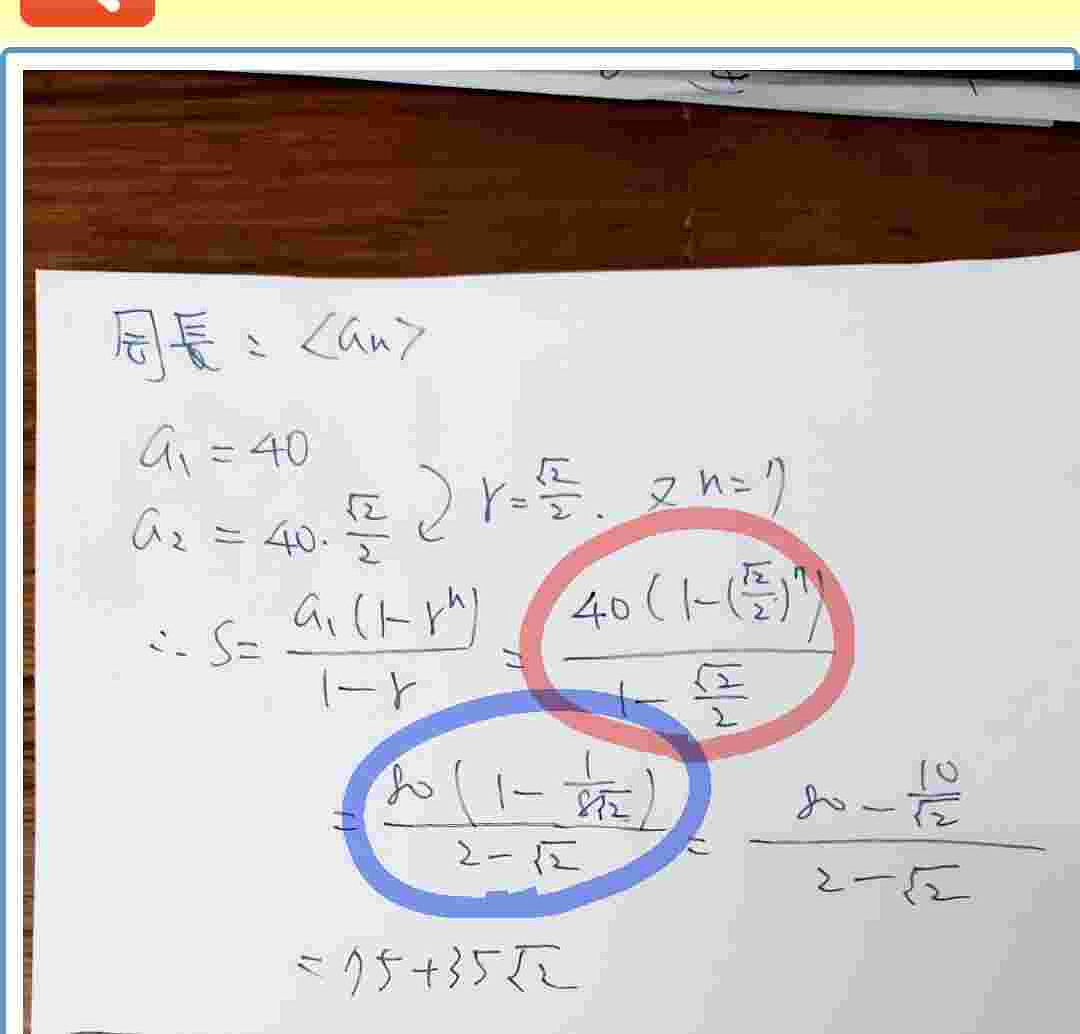 周長：<an>
a₁ = 40
a₂ = 40·√2/2 r = √2/2. 又 n = 7
∴ S = a₁(1-rⁿ)/(1-r) = 40(1-(√2/2)⁷)/(1-√2/2)
= 80(1-1/(8√2))/(2-√2) = (80-10/√2)/(2-√2)
= 75+35√2